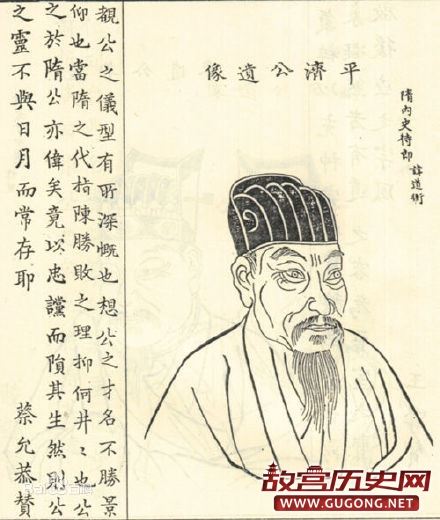 平濟公遺像
隋內史侍郎 諱道衡
觀公之儀型有所深慨也想公之才名不勝景
仰也當隋之代指陳勝敗之理抑何井〻也公
之於隋公亦偉矣竟以忠讜而隕其生然則公
之靈不與日月而常存耶 蔡允恭贊
故宫历史网
WWW.GUGONG.NET